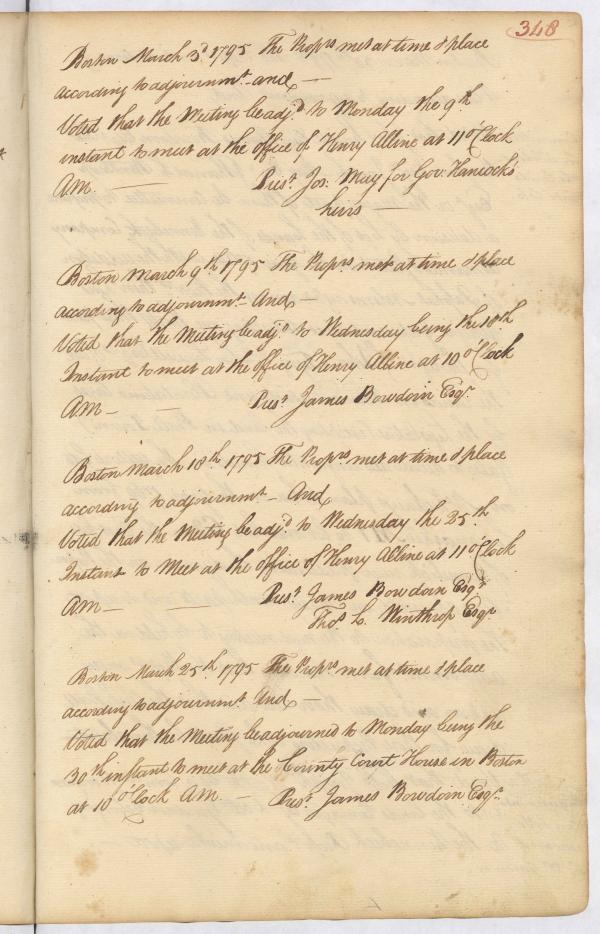 348
Boston March 3d 1795 The Proprs met at time & place
according to adjournmt. and, —
Voted that the Meeting be adjd. to Monday the 9th
instant to meet at the office of Henry Alline at 11 o'Clock
A.M. — Prest. Jos: May for Gov: Hancock's
heirs —
Boston March 9th 1795 The Proprs. met at time & place
according to adjournmt. And, —
Voted that the Meeting be adjd. to Wednesday being the 18th
Instant to meet at the office of Henry Alline at 10 o'Clock
A.M. — — Prest. James Bowdoin Esqr.
Boston March 18th 1795 The Proprs met at time & place
according to adjournmt. — And,
Voted that the Meeting be adjd. to Wednesday the 25th
Instant to Meet at the office of Henry Alline at 11 o'Clock
A.M. — — Prest. James Bowdoin Esqr
Thos. L. Winthrop Esqr
Boston March 25th 1795 The Proprs met at time & place
according to adjournmt. And, —
Voted that the Meeting be adjourned to Monday being the
30th instant to meet at the County Court House in Boston
at 10 o'Clock A.M. — Prest. James Bowdoin Esqr.